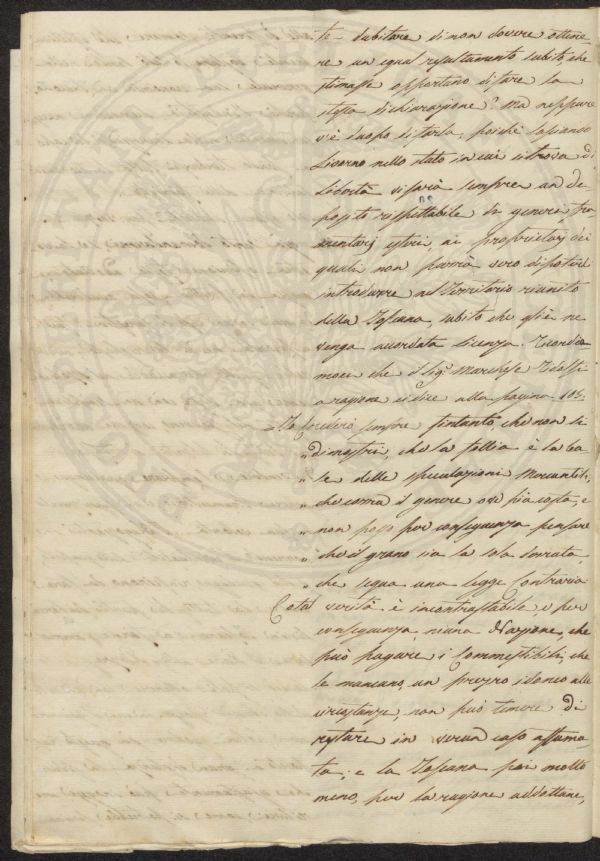 te dubitare di non dovere ottene
re un egual resultamento subito, che
stimasse opportuno di fare la
stessa dichiarazione? Ma neppure
v'è duopo di farla, poiché lasciando
Livorno nello stato in cui si trova di
Libertà vi sarà sempre un de
posito rispettabile di generi fru
mentarj esteri, ai proprietarj dei
quali non parrà vero di poterli
introdurre nel Territorio riunito
della Toscana, subito che gliè ne
venga accordata licenza. Ricordia
moci che il Sig.r Marchese Ridolfi
a ragione ci dice alla pagina 105.
"Io crederò sempre fintanto, che non si
" dimostri, che la follia è la ba
" se delle speculazioni Mercantili,
" che correrà il genere ove più costa, e
" non posso per conseguenza pensare
" che il grano sia la sola derrata,
" che segua una legge contraria
Cotal verità è incontrastabile e per
conseguenza niuna Nazione, che
può pagare i Commestibili, che
le mancano, un prezzo idoneo alle
circostanze, non può temere di
restare in verun caso affama
ta; e la Toscana poi molto
meno, per la ragione addottane,